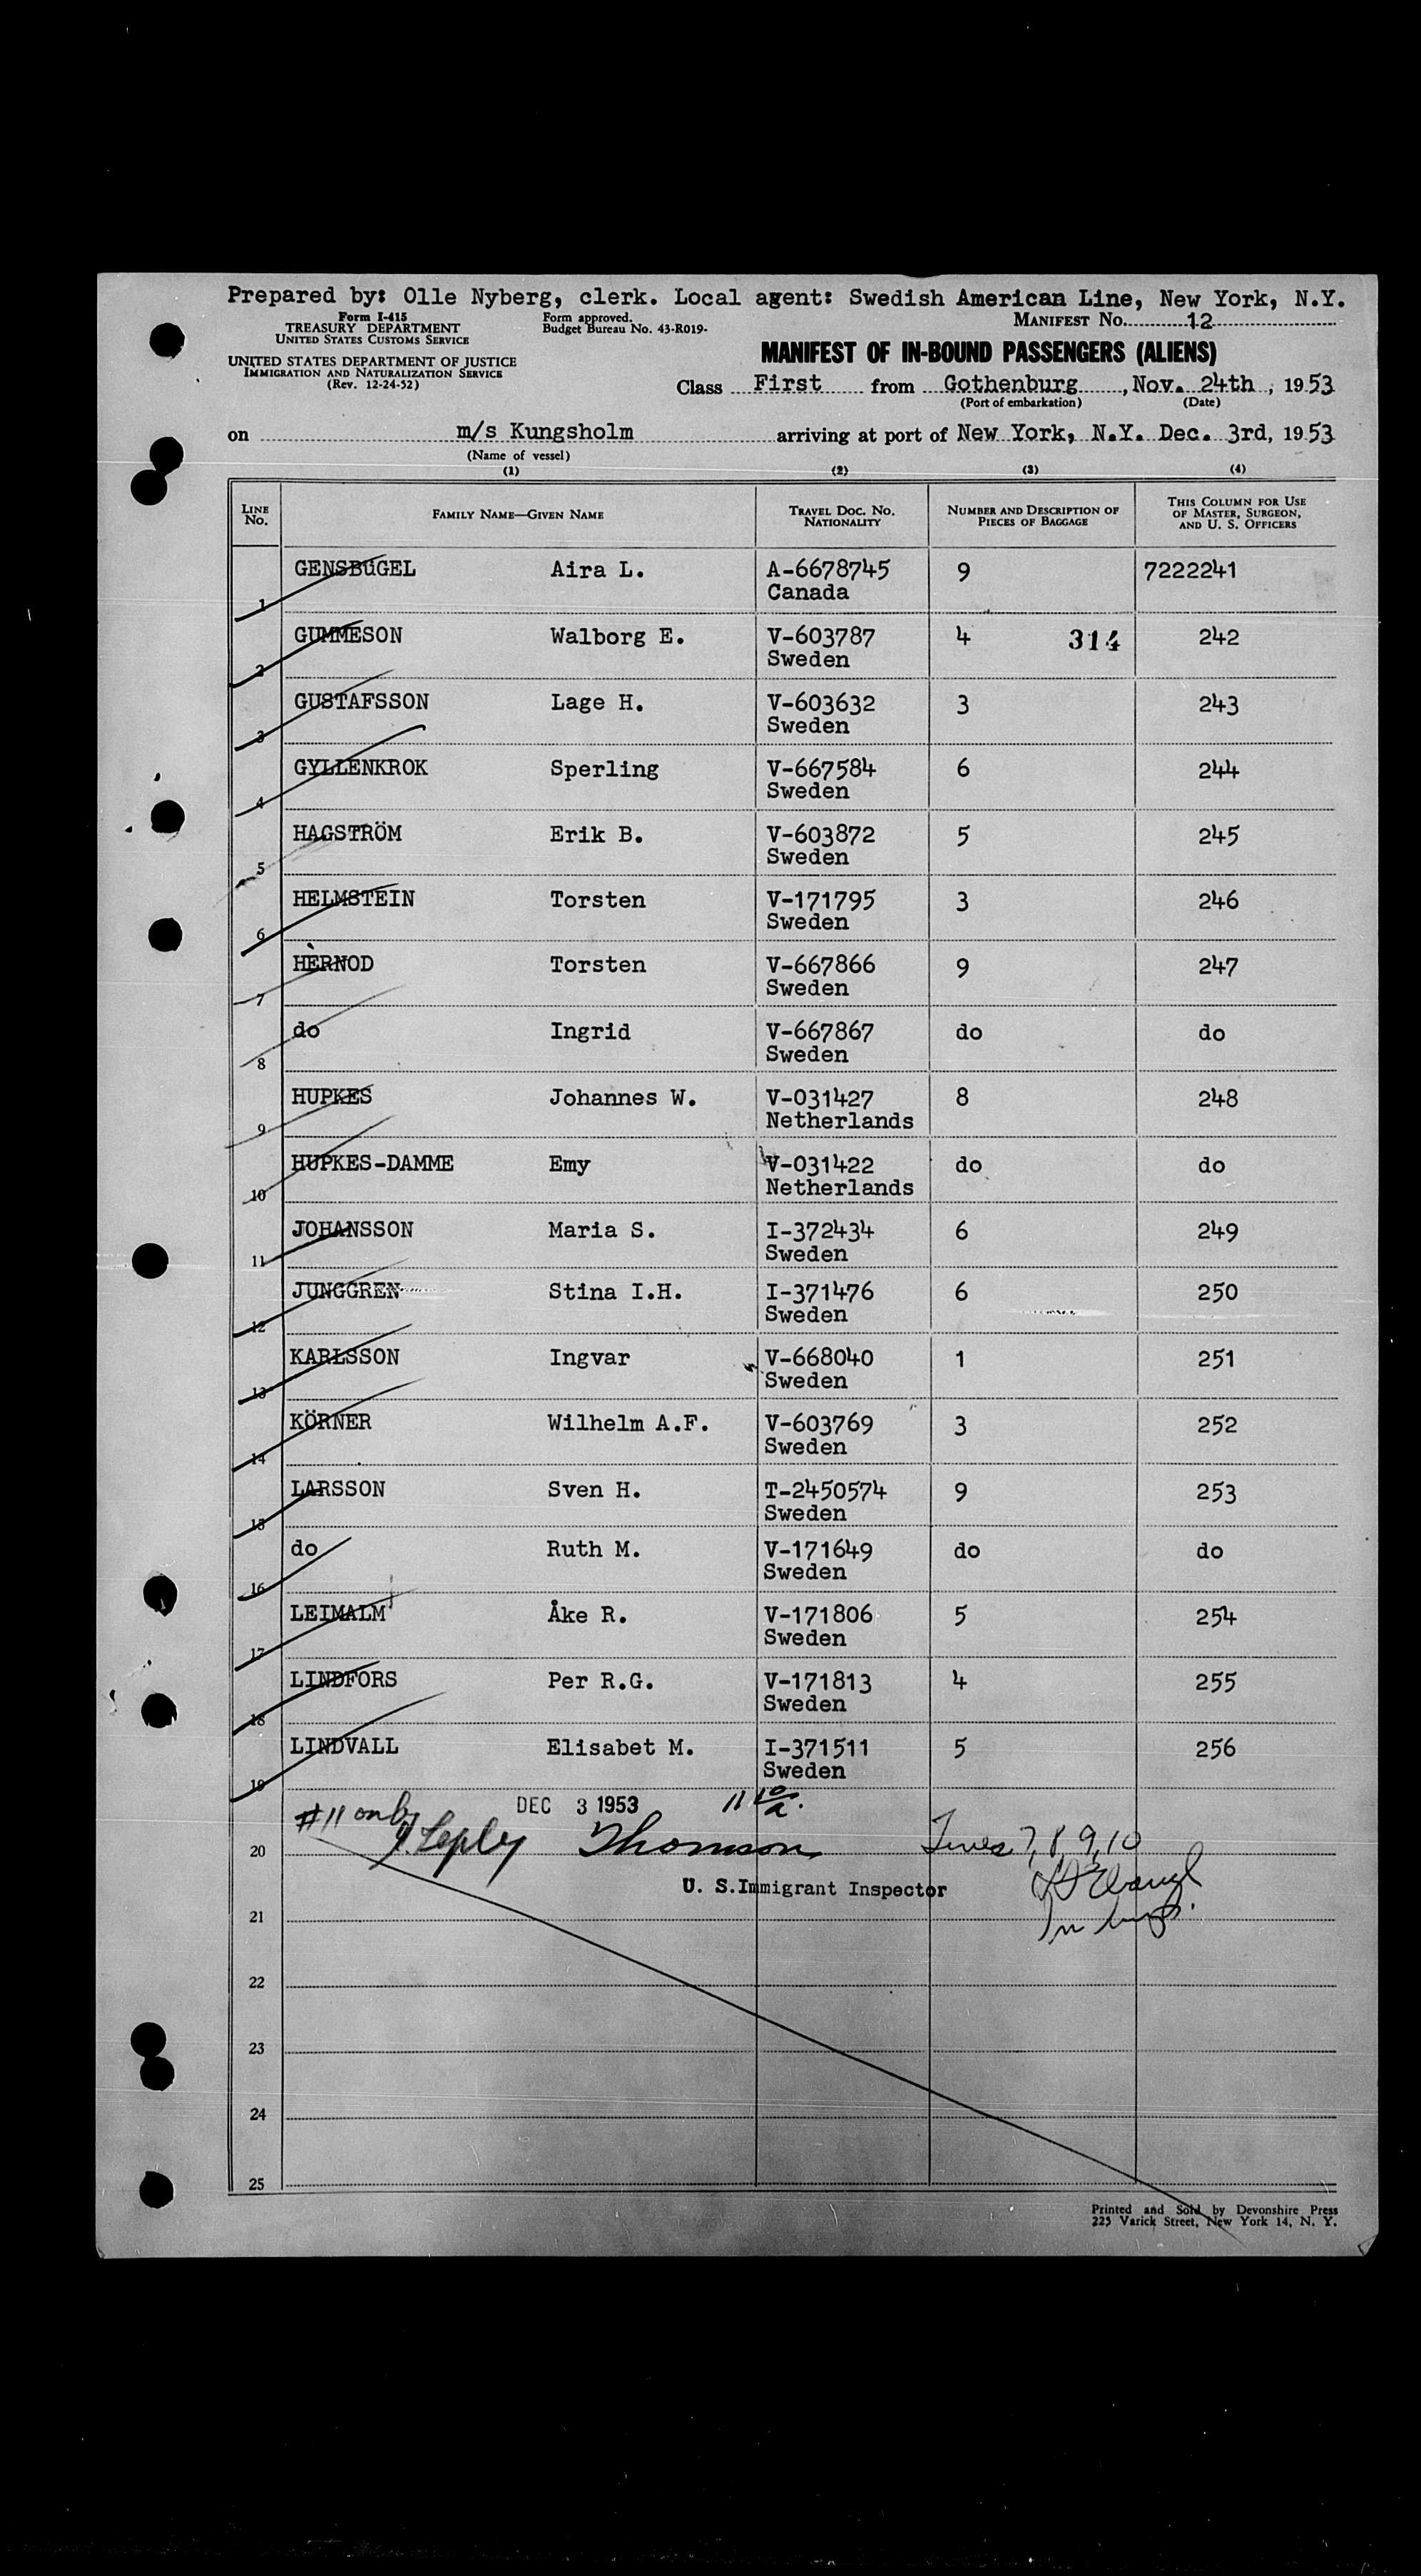 Prepared by: Olle Nyberg, clerk. Local agent: Swedish American Line, New York, N.Y.
Form I-415
TREASURY DEPARTMENT
UNITED STATES CUSTOMS SERVICE
UNITED STATES DEPARTMENT OF JUSTICE
IMMIGRATION AND NATURALIZATION SERVICE
(Rev. 12-24-52)
Form approved.
Budget Bureau No. 43-R019-
MANIFEST No. 12
MANIFEST OF IN-BOUND PASSENGERS (ALIENS)
Class First from Gothenburg, Nov. 24th, 1953
(Port of embarkation) (Date)
on m/s Kungsholm arriving at port of New York, N.Y. Dec. 3rd, 1953
(Name of vessel)
(1) (2) (3) (4)
LINE No. FAMILY NAME—GIVEN NAME TRAVEL DOC. NO. NATIONALITY NUMBER AND DESCRIPTION OF PIECES OF BAGGAGE THIS COLUMN FOR USE OF MASTER, SURGEON, AND U. S. OFFICERS
1 GENSBUGEL Aira L. A-6678745 9 7222241
Canada
2 GUMMESON Walborg E. V-603787 4 314 242
Sweden
3 GUSTAFSSON Lage H. V-603632 3 243
Sweden
4 GYLLENKROK Sperling V-667584 6 244
Sweden
5 HAGSTRÖM Erik B. V-603872 5 245
Sweden
6 HELMSTEIN Torsten V-171795 3 246
Sweden
7 HÈRNOD Torsten V-667866 9 247
Sweden
8 do Ingrid V-667867 do do
Sweden
9 HUPKES Johannes W. V-031427 8 248
Netherlands
10 HUPKES-DAMME Emy V-031422 do do
Netherlands
11 JOHANSSON Maria S. I-372434 6 249
Sweden
12 JUNGGREN Stina I.H. I-371476 6 250
Sweden
13 KARLSSON Ingvar V-668040 1 251
Sweden
14 KÖRNER Wilhelm A.F. V-603769 3 252
Sweden
15 LARSSON Sven H. T-2450574 9 253
Sweden
16 do Ruth M. V-171649 do do
Sweden
17 LEIMALM Åke R. V-171806 5 254
Sweden
18 LINDFORS Per R.G. V-171813 4 255
Sweden
19 LINDVALL Elisabet M. I-371511 5 256
Sweden
#11 only DEC 3 1953
20 Thomson 7, 8, 9, 10
U. S. Immigrant Inspector
21
22
23
24
25
Printed and Sold by Devonshire Press
225 Varick Street, New York 14, N. Y.